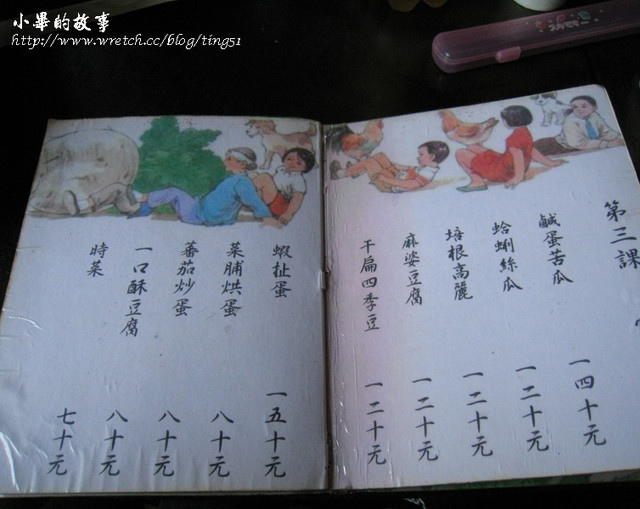 小畢的故事
http://www.wretch.cc/blog/ting51
第三課
鹹蛋苦瓜 一四十元
蛤蜊絲瓜 一二十元
培根高麗 一二十元
麻婆豆腐 一二十元
干扁四季豆 一二十元
蝦扯蛋 一五十元
菜脯烘蛋 八十元
蕃茄炒蛋 八十元
一口酥豆腐 八十元
時菜 七十元